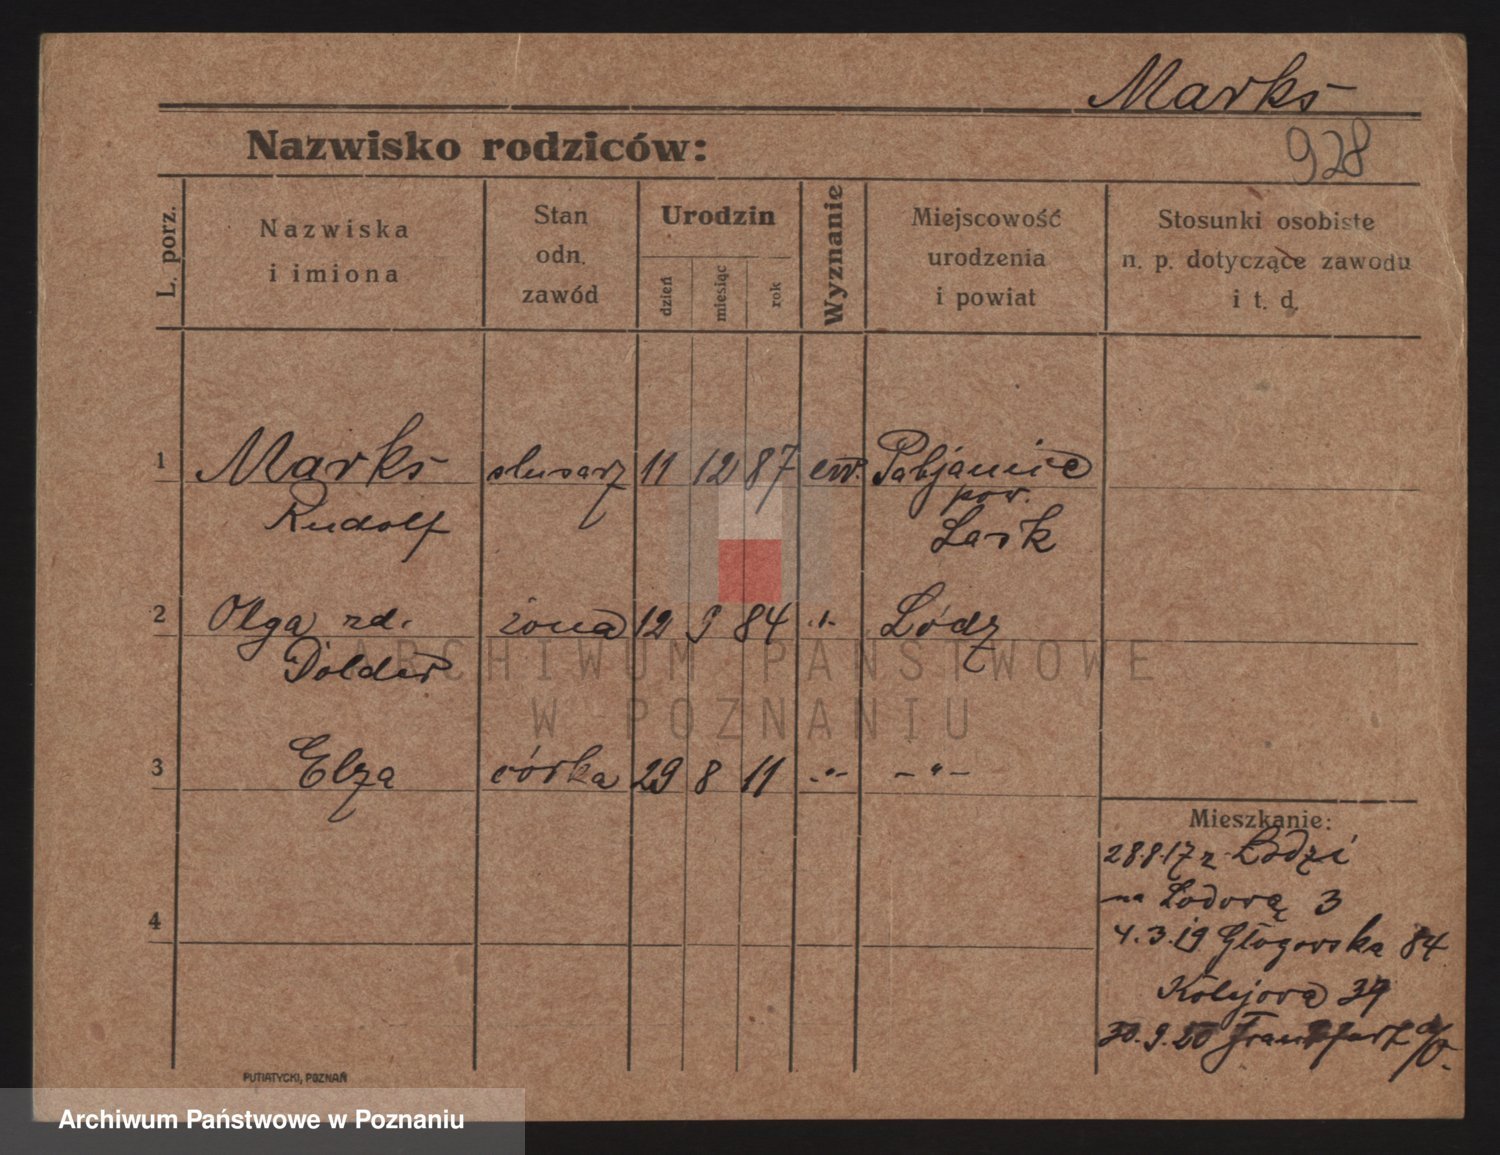 Marks
Nazwisko rodziców:
928
L. porz.
Nazwiska
i imiona
Stan
odn.
zawód
Urodzin
dzień
miesiąc
rok
Wyznanie
Miejscowość
urodzenia
i powiat
Stosunki osobiste
n. p. dotyczące zawodu
i t. d.
1 Marks slusarz 11 12 87 ew. Pabjanice
Rudolf pow.
Lask
2 Olga rd. żona 12 9 84 -"- Lódz
Dolder
3 Elza córka 29 8 11 -"- -"-
Mieszkanie:
28.8.17 z Lodzi
na Lodową 3
4
4.3.19 Głogowska 84
Kolejowa 37
30.9.20 Frankfurt a/O.
PUTIATYCKI, POZNAŃ
ARCHIWUM PAŃSTWOWE
W POZNANIU
Archiwum Państwowe w Poznaniu